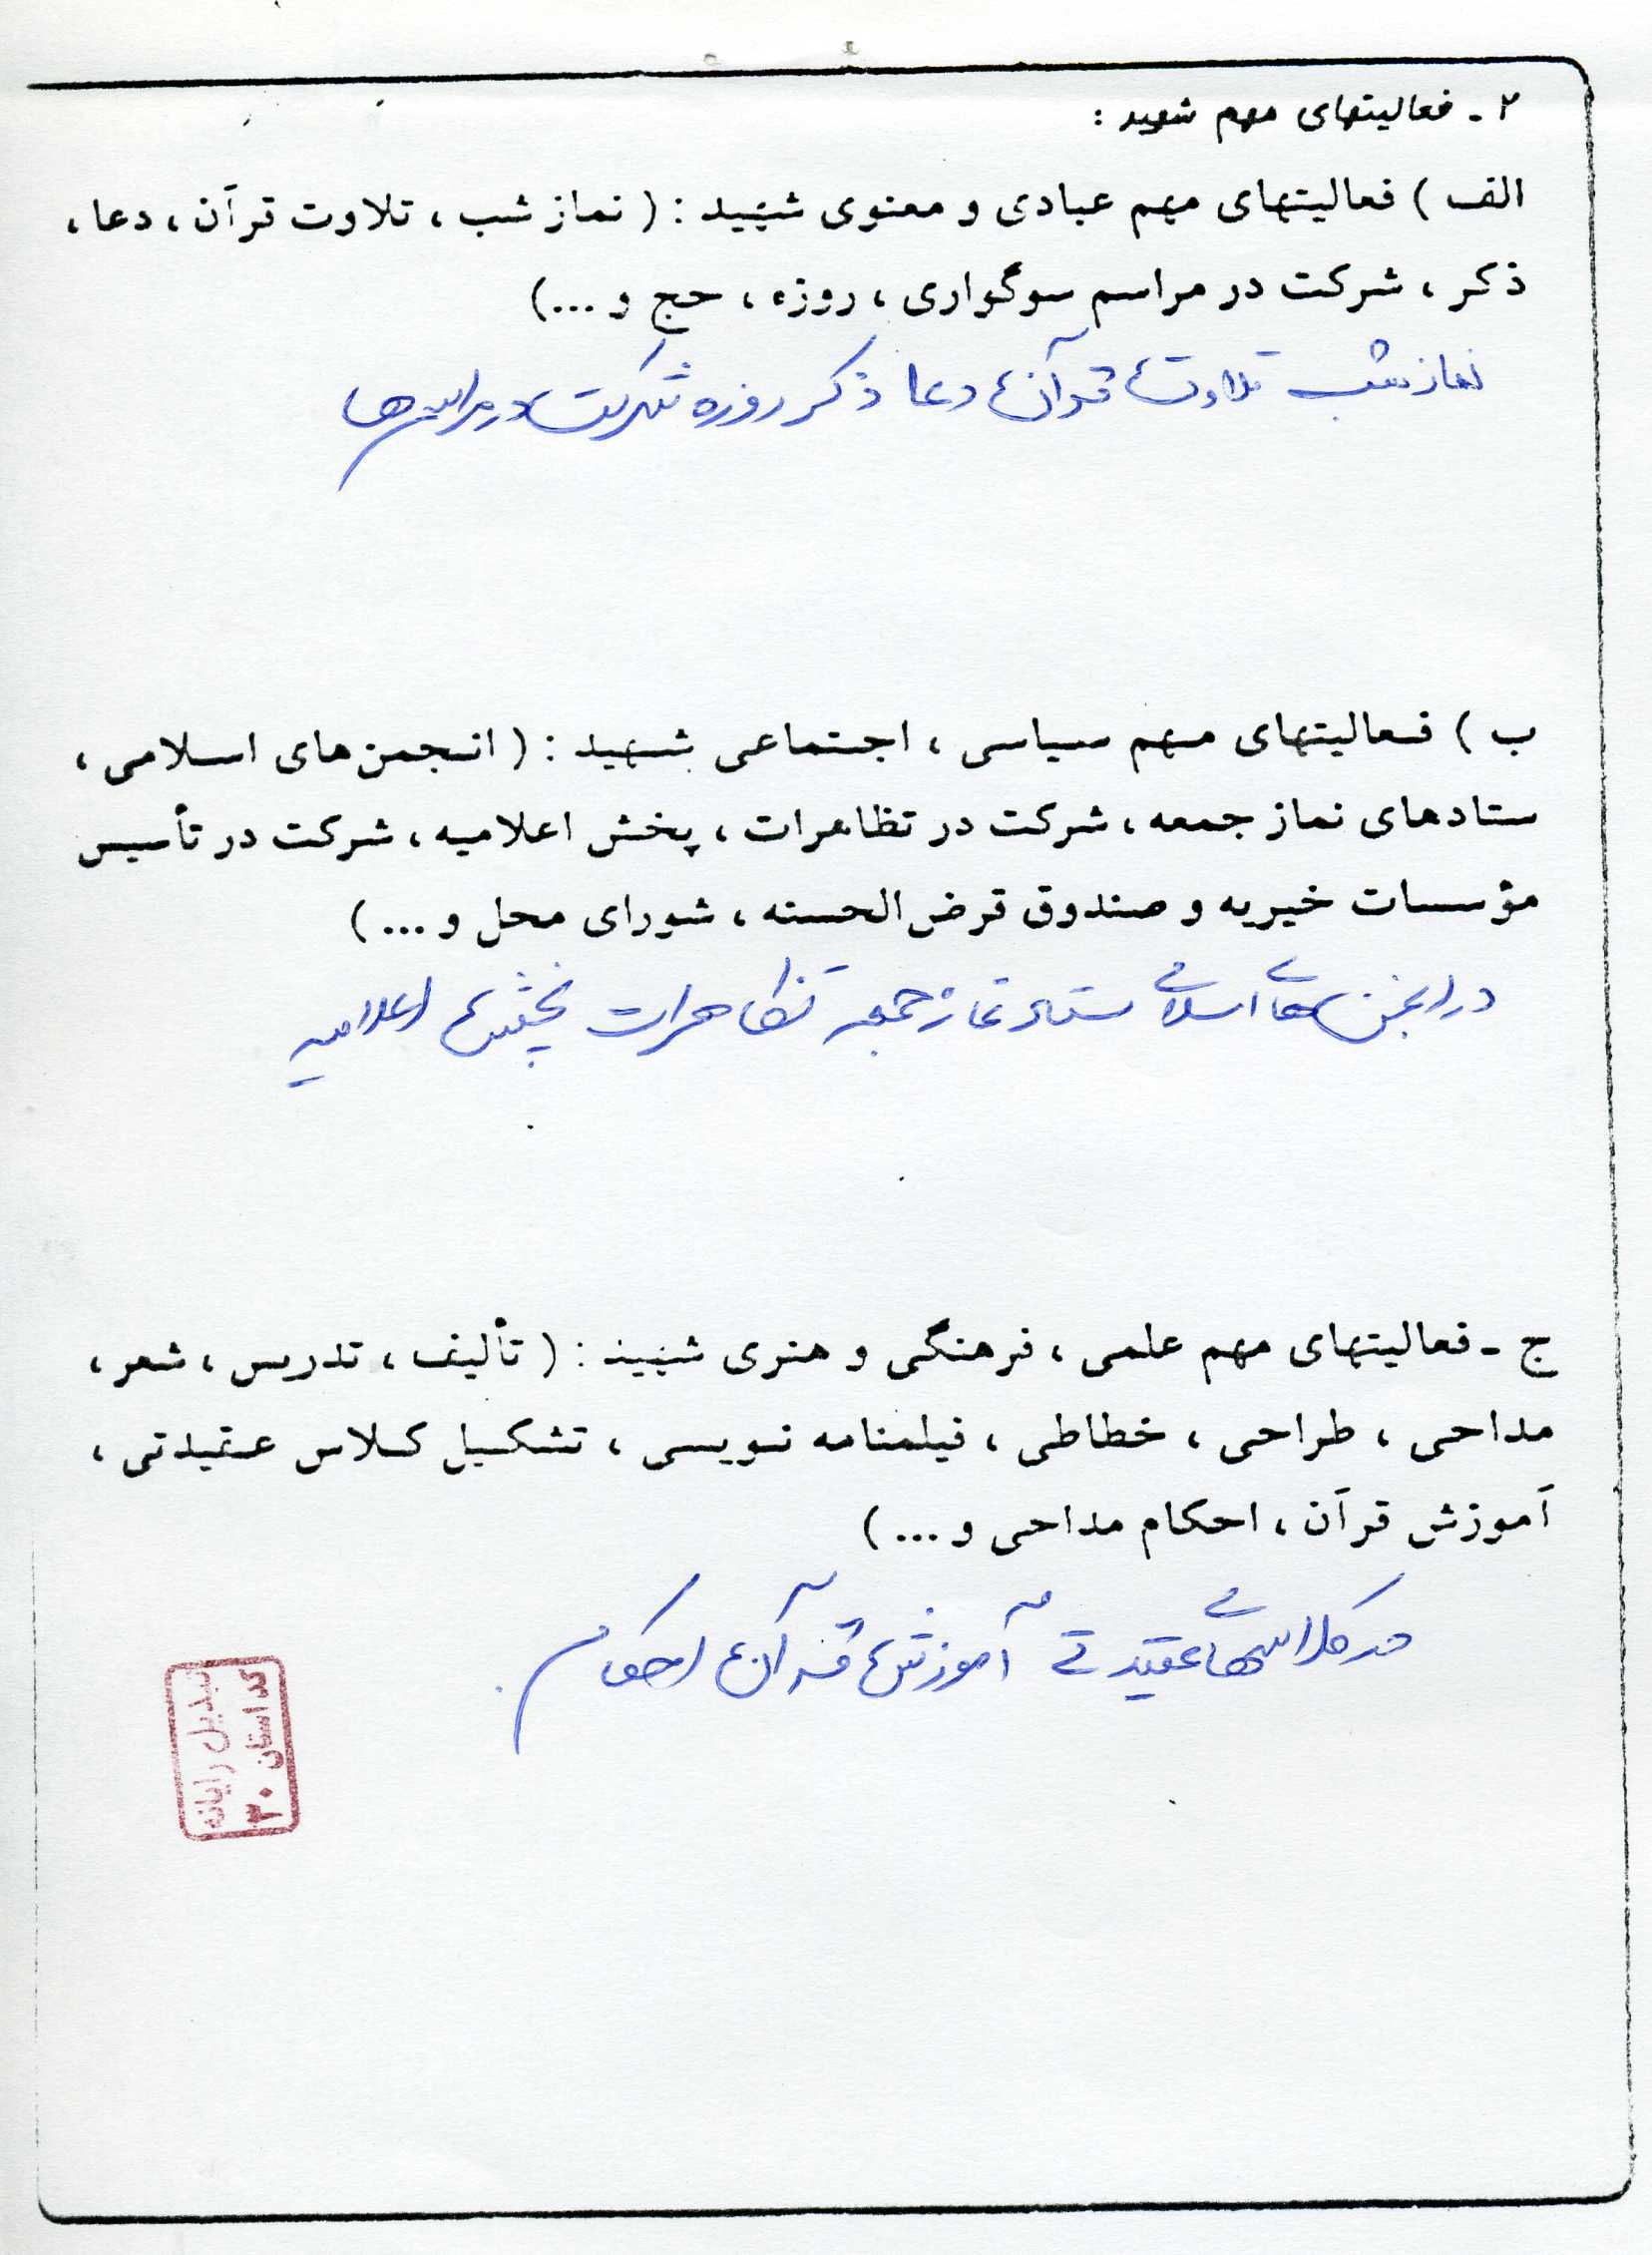 ۲ - فعالیتهای مهم شهید :
الف ) فعالیتهای مهم عبادی و معنوی شهید : ( نماز شب ، تلاوت قرآن ، دعا ،
ذکر ، شرکت در مراسم سوگواری ، روزه ، حج و ... )
نماز شب تلاوت قرآن دعا ذکر روزه شرکت در مراسم ها
ب ) فعالیتهای مهم سیاسی ، اجتماعی شهید : ( انجمن های اسلامی ،
ستادهای نماز جمعه ، شرکت در تظاهرات ، پخش اعلامیه ، شرکت در تأسیس
مؤسسات خیریه و صندوق قرض الحسنه ، شورای محل و ... )
در انجمن های اسلامی ستاد نماز جمعه تظاهرات پخش اعلامیه
ج - فعالیتهای مهم علمی ، فرهنگی و هنری شهید : ( تألیف ، تدریس ، شعر ،
مداحی ، طراحی ، خطاطی ، فیلمنامه نویسی ، تشکیل کلاس عقیدتی ،
آموزش قرآن ، احکام مداحی و ... )
در کلاسهای عقیدتی آموزش قرآن احکام
تبدیل رایانه
کد استان ۳۰